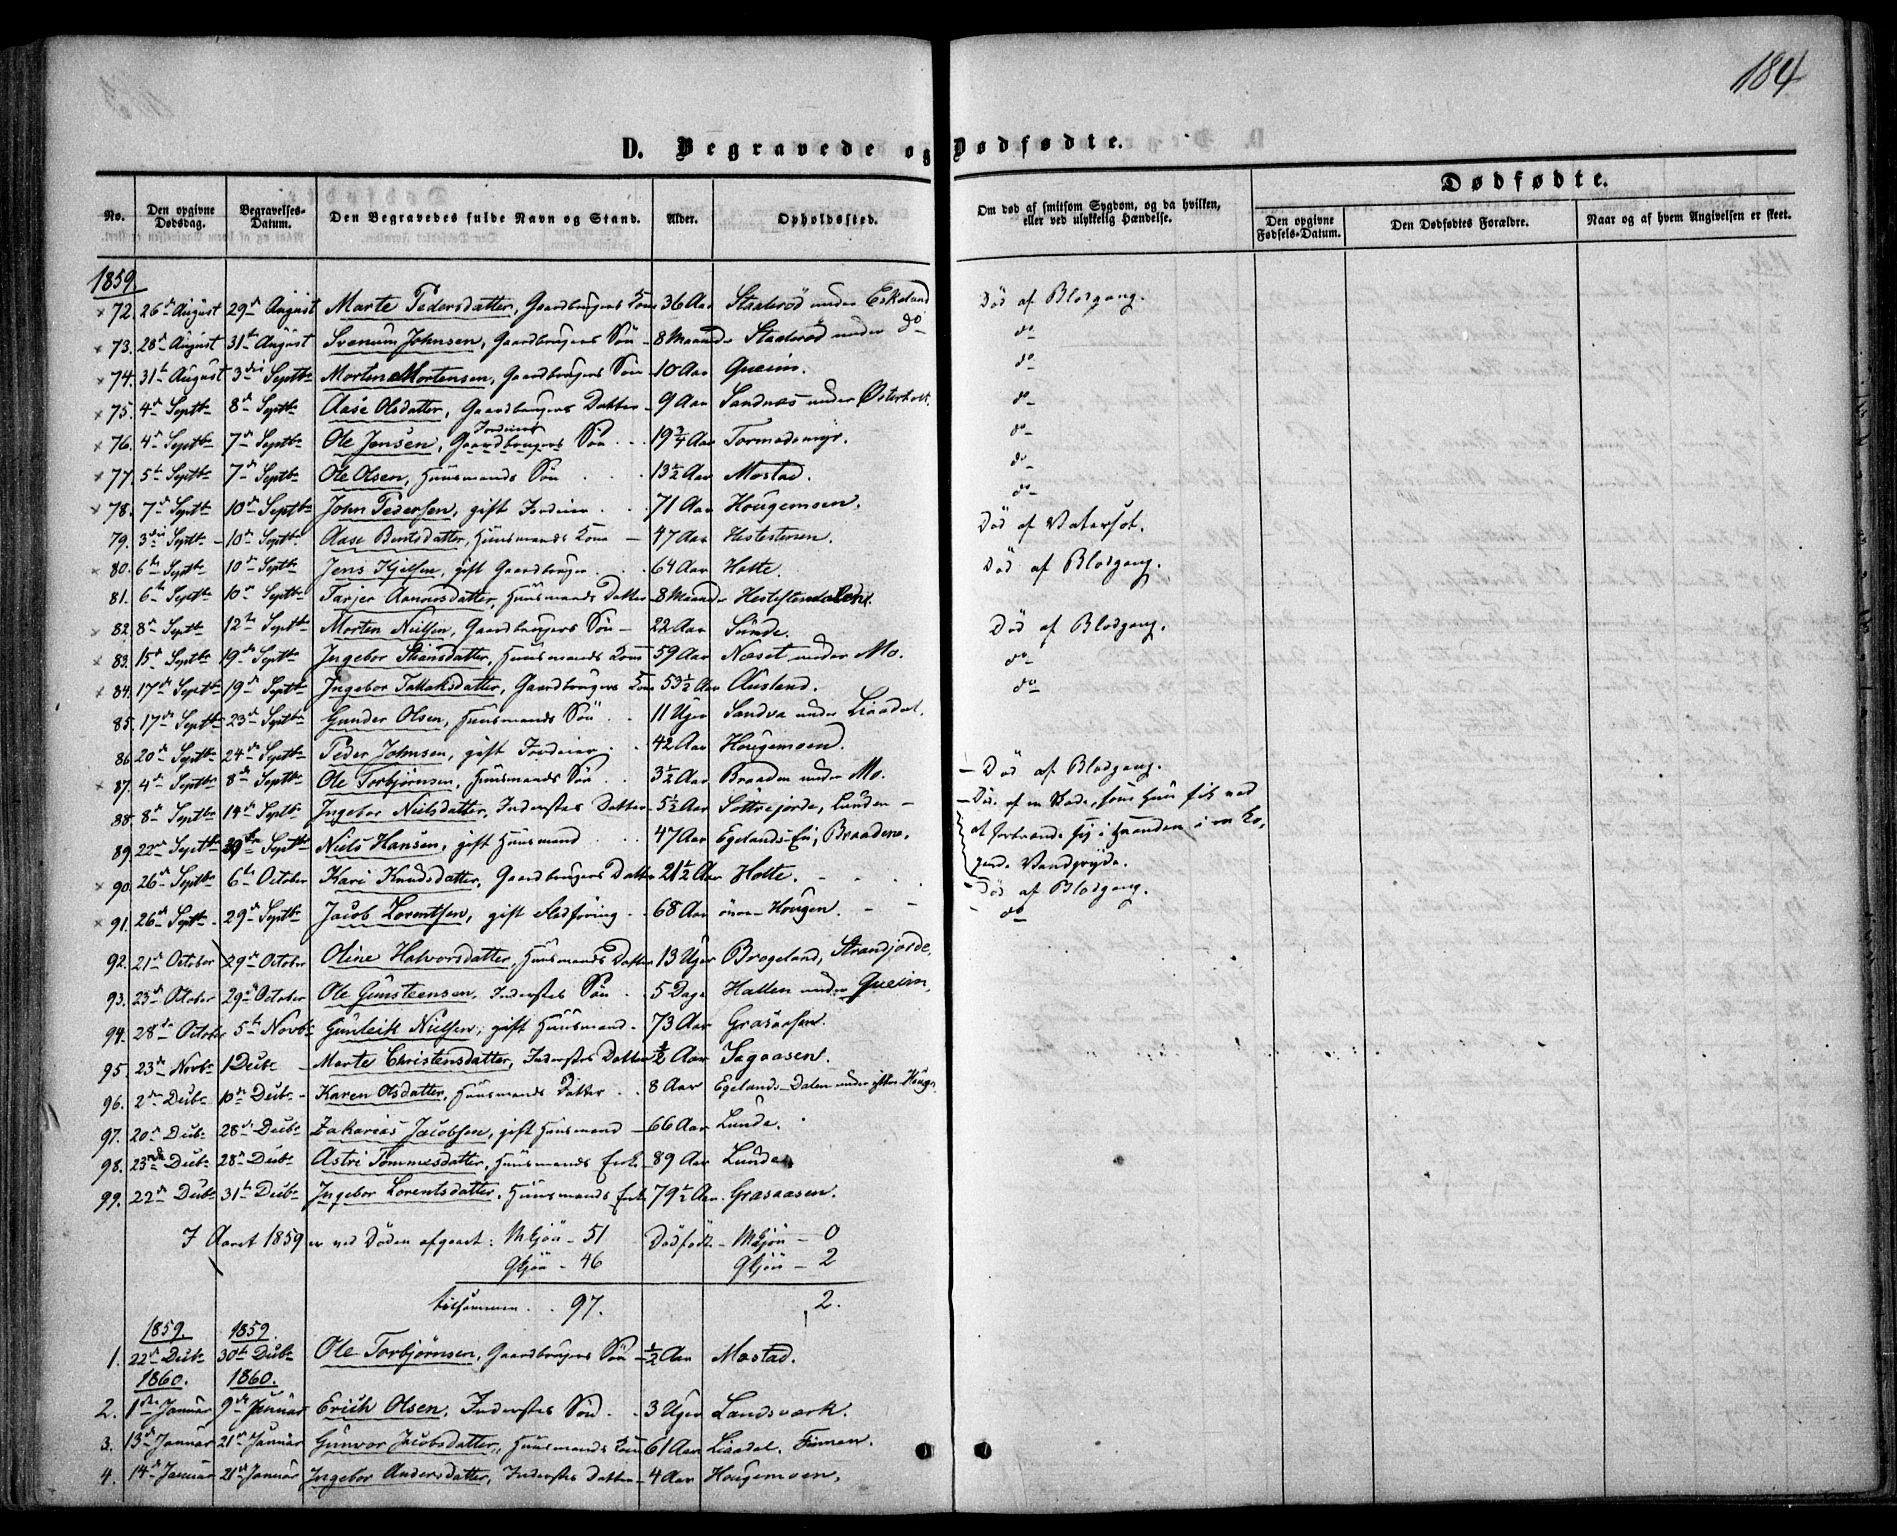 184
D. Begravede og Dødfødte.
No. Den opgivne Dødsdag. Begravelses-Datum. Den Begravedes fulde Navn og Stand. Alder. Opholdssted. Om død af smitsom Sygdom, og da hvilken, eller ved ulykkelig Hændelse. Dødfødte. Den opgivne Fødsels-Datum. Den Dødfødtes Forældre. Naar og af hvem Angivelsen er skeet.
1859
72. 26de August 29de August Marte Pedersdatter, Gaardbrugers Kone 36 Aar Staalerød under Eskeland Død af Blodgang.
73. 28de August 31te August Svenum Johnsen, Gaardbrugers Søn 8 Maaneder Staalerød under do do
74. 31te August 3die Septbr Morten Mortensen, Gaardbrugers Søn 10 Aar Queim. do
75. 4de Septbr 8de Septbr Aase Olsdatter, Gaardbrugers Datter 9 Aar Sandnæs under Østerholt. do
76. 4de Septbr 7de Septbr Ole Jensen, Jordeiers Gaardbrugers Søn 19 3/4 Aar Tormodsmyr. do
77. 5te Septbr 7de Septbr Ole Olsen, Huusmands Søn 13 1/2 Aar Mostad. do
78. 7de Septbr 10de Septbr John Pedersen, gift Jordeier 71 Aar Hougemoen. do
79. 3die Septbr 10de Septbr Aase Berntsdatter, Huusmands Kone 47 Aar Hestestenen. Død af Vatersot.
80. 6te Septbr 10de Septbr Jens Kjelsen, gift Gaardbruger 64 Aar Holte. Død af Blodgang.
81. 6te Septbr 10de Septbr Tarjer Aanonsdatter, Huusmands Datter 8 Maaneder
82. 8de Septbr 12te Septbr Morten Nielsen, Gaardbrugers Søn 22 Aar Sunde. Død af Blodgang.
83. 15de Septbr 19de Septbr Ingebor Stiansdatter, Huusmands Kone 59 Aar Næset under Mo. do
84. 17de Septbr 19de Septbr Ingebor Tallaksdatter, Gaardbrugers Kone 53 1/2 Aar Ausland. do
85. 17de Septbr 23de Septbr Gunder Olsen, Huusmands Søn 11 Uger Sandva under Liaadal.
86. 20de Septbr 24de Septbr Peder Johnsen, gift Jordeier 42 Aar Hougemoen.
87. 4de Septbr 8de Septbr Ole Torbjørnsen, Huusmands Søn 3 1/2 Aar Braaden under Mo. Død af Blodgang.
88. 8de Septbr 14de Septbr Ingebor Nielsdatter, Inderstes Datter 5 1/2 Aar Søttrejorde, Lunden Død af en Skade, som hun fik ved
89. 22de Septbr 30te Septbr Niels Hansen, gift Huusmand 47 Aar Egelands-Ei, Braadene. at forbrænde sig i Haanden i en ko-
gende Vandgryde.
90. 26de Septbr 6te October Kari Knudsdatter, Gaardbrugers Datter 21 1/2 Aar Holte. Død af Blodgang.
91. 26de Septbr 29de Septbr Jacob Lorentsen, gift Fledføring 68 Aar øvre Hougen. do
92. 21de October 29de October Oline Halvorsdatter, Huusmands Datter 13 Uger Brogeland, Strandjorde.
93. 23de October 29de October Ole Gunsteensen, Inderstes Søn 5 Dage Hallen under Queim.
94. 28de October 5te Novbr Gunleik Nielsen, gift Huusmand 73 Aar Grasaasen.
95. 23de Novbr 1 Decbr Marte Christensdatter, Inderstes Datter 1/2 Aar Sagaasen.
96. 2den Decbr 10de Decbr Karen Olsdatter, Huusmands Datter 8 Aar Egelands-Dalen under
97. 20de Decbr 28de Decbr Zakarias Jacobsen, gift Huusmand 66 Aar Lunde.
98. 23de Decbr 28de Decbr Astri Tommesdatter, Huusmands Enke 89 Aar Lunde.
99. 22de Decbr 31te Decbr Ingebor Lorentsdatter, Huusmands Enke 79 1/2 Aar Grasaasen.
I Aaret 1859 er ved Døden afgaaet: Mkjøn - 51 Dødfødte - Mkjøn - 0
Qkjøn - 46 Qkjøn - 2
tilsammen 97. 2.
1859. 1859.
1. 22de Decbr 30te Decbr Ole Torbjørnsen, Gaardbrugers Søn 1/2 Aar Mostad.
1860. 1860.
2. 1ste Januar 9de Januar Erich Olsen, Inderstes Søn 3 Uger Landsværk.
3. 13de Januar 21de Januar Gunvor Jacobsdatter, Huusmands Kone 61 Aar Liaadal, Timen.
4. 14de Januar 21de Januar Ingebor Andersdatter, Inderstes Datter 4 Aar Hougemoen.